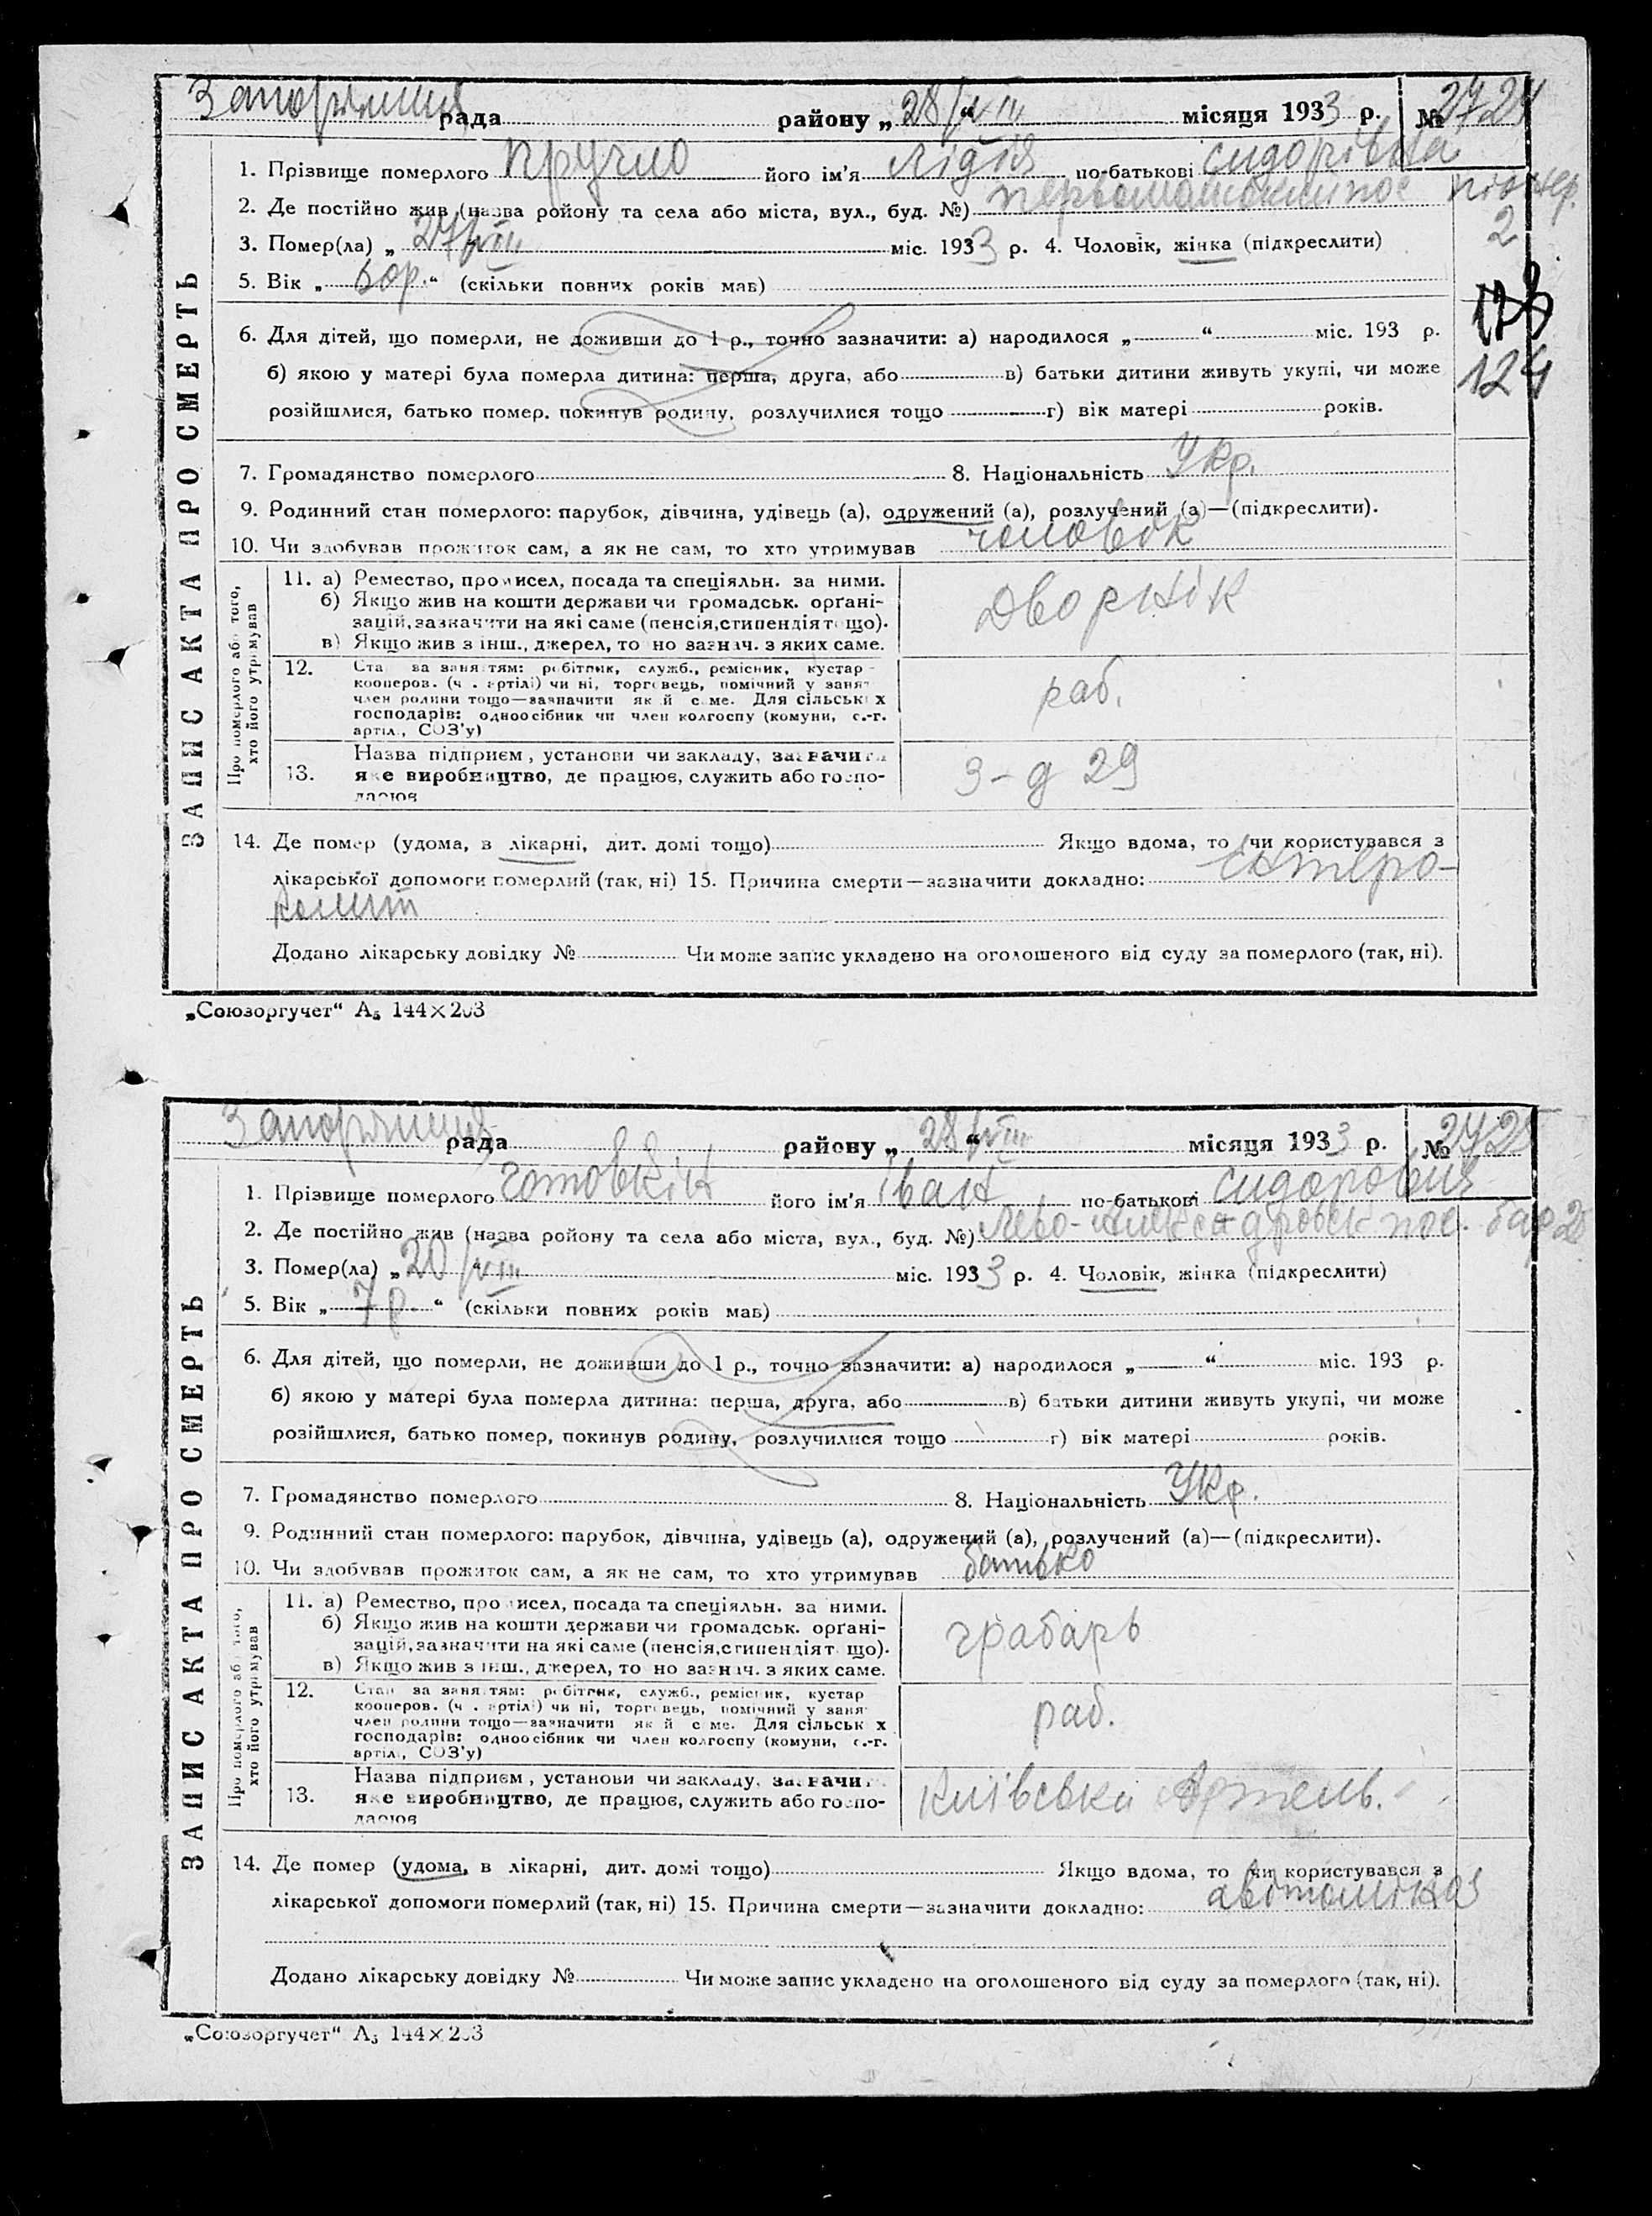 Запоріжжя рада району „ 28/VIII “ місяця 1933 р. № 2724
ЗАПИС АКТА ПРО СМЕРТЬ
1. Прізвище померлого його ім'я Лідія по-батькові Сидорівна
2. Де постійно жив (назва ройону та села або міста, вул., буд. №) Первомайський пос піонер.
2
3. Помер(ла) „ 27/VIII міс. 1933 р. 4. Чоловік, жінка (підкреслити)
5. Вік „ 60р. “ (скільки повних років мав)
124
6. Для дітей, що померли, не доживши до 1 р., точно зазначити: а) народилося „ “ міс. 193 р.
б) якою у матері була померла дитина: перша, друга, або в) батьки дитини живуть укупі, чи може
розійшлися, батько помер, покинув родину, розлучилися тощо г) вік матері років.
7. Громадянство померлого 8. Національність Укр.
9. Родинний стан померлого: парубок, дівчина, удівець (а), одружений (а), розлучений (а)—(підкреслити).
10. Чи здобував прожиток сам, а як не сам, то хто утримував чоловік
Про померлого або того, хто його утримував
11. а) Ремество, промисел, посада та спеціяльн. за ними.
б) Якщо жив на кошти держави чи громадськ. орґані-
зацій, зазначити на які саме (пенсія, стипендія тощо).
в) Якщо жив з інш., джерел, то но зазнач. з яких саме.
Дворнік
12. Стан за заняттям: робітник, служб., ремісник, кустар -
кооперов. (ч . артілі) чи ні, торговець, помічний у занят
член родини тощо—зазначити як й саме. Для сільських
господарів: одноосібник чи член колгоспу (комуни, с.-г.
артіл., СОЗ'у)
раб.
13. Назва підприєм , установи чи закладу, зазначити
яке виробництво, де працює, служить або госпо-
дарює
З-д 29
14. Де помер (удома, в лікарні, дит. домі тощо) Якщо вдома, то чи користувався з
лікарської допомоги померлий (так, ні) 15. Причина смерти—зазначити докладно: Ентеро-
коліт
Додано лікарську довідку № Чи може запис укладено на оголошеного від суду за померлого (так, ні).
„Союзоргучет“ А₅ 144×203
Запоріжжя рада району „ 28/VIII “ місяця 1933 р. № 2725
ЗАПИС АКТА ПРО СМЕРТЬ
1. Прізвище померлого його ім'я Іван по-батькові Сидоровия
2. Де постійно жив (назва ройону та села або міста, вул., буд. №) пос. бар 20
3. Помер(ла) „ 20/VIII міс. 1933 р. 4. Чоловік, жінка (підкреслити)
5. Вік „ 7 р. “ (скільки повних років мав)
6. Для дітей, що померли, не доживши до 1 р., точно зазначити: а) народилося „ “ міс. 193 р.
б) якою у матері була померла дитина: перша, друга, або в) батьки дитини живуть укупі, чи може
розійшлися, батько помер, покинув родину, розлучилися тощо г) вік матері років.
7. Громадянство померлого 8. Національність Укр.
9. Родинний стан померлого: парубок, дівчина, удівець (а), одружений (а), розлучений (а)—(підкреслити).
10. Чи здобував прожиток сам, а як не сам, то хто утримував батько
Про померлого або того, хто його утримував
11. а) Ремество, промисел, посада та спеціяльн. за ними.
б) Якщо жив на кошти держави чи громадськ. орґані-
зацій, зазначити на які саме (пенсія, стипендія т що).
в) Якщо жив з інш., джерел, то но зазнач. з яких саме.
грабарь
12. Стан за заняттям: робітник, служб., ремісник, кустар
кооперов. (ч . артілі) чи ні, торговець, помічний у заня
член родини тощо—зазначити як й саме. Для сільськ х
господарів: одноосібник чи член колгоспу (комуни, с.-г.
артіл., СОЗ'у)
раб.
13. Назва підприєм , установи чи закладу, зазначи
яке виробництво, де працює, служить або госпо-
дарює
Київська Артель.
14. Де помер (удома, в лікарні, дит. домі тощо) Якщо вдома, то чи користувався з
лікарської допомоги померлий (так, ні) 15. Причина смерти—зазначити докладно:
Додано лікарську довідку № Чи може запис укладено на оголошеного від суду за померлого (так, ні).
„Союзоргучет“ А₅ 144×203